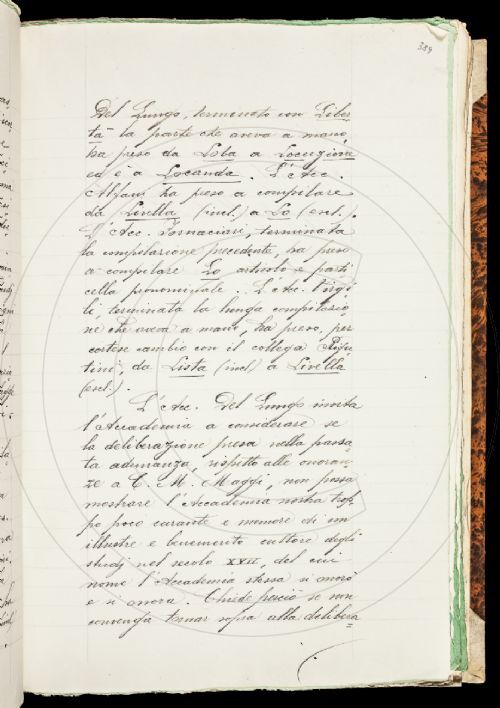 389
Del Lungo, terminato con Liber=
tà la parte che aveva a mano,
ha preso da Loba a Locuzione
ed è a Locanda. L'Acc.
Alfani ha preso a compilare
da Livella (incl.) a Lo (escl.).
L'Acc. Fornaciari, terminata
la compilazione precedente, ha preso
a compilare Lo articolo e parti
cella pronominale. L'Acc. Virgi
li, terminata la lunga compilazio
ne che aveva a mano, ha preso, per
cortese cambio con il collega Rigu
tini, da Lista (incl.) a Livella
(escl.).
L'Acc. Del Lungo invita
l'Accademia a considerare se
la deliberazione presa nella passa=
ta adunanza, rispetto alle onoran=
ze a C. M. Maggi, non possa
mostrare l'Accademia nostra trop=
po poco curante e memore di un
illustre e benemerito cultore degli
studj nel secolo XVII, del cui
nome l'Accademia stessa si onorò
e si onora. Chiede perciò se non
convenga tornar sopra alla delibera=